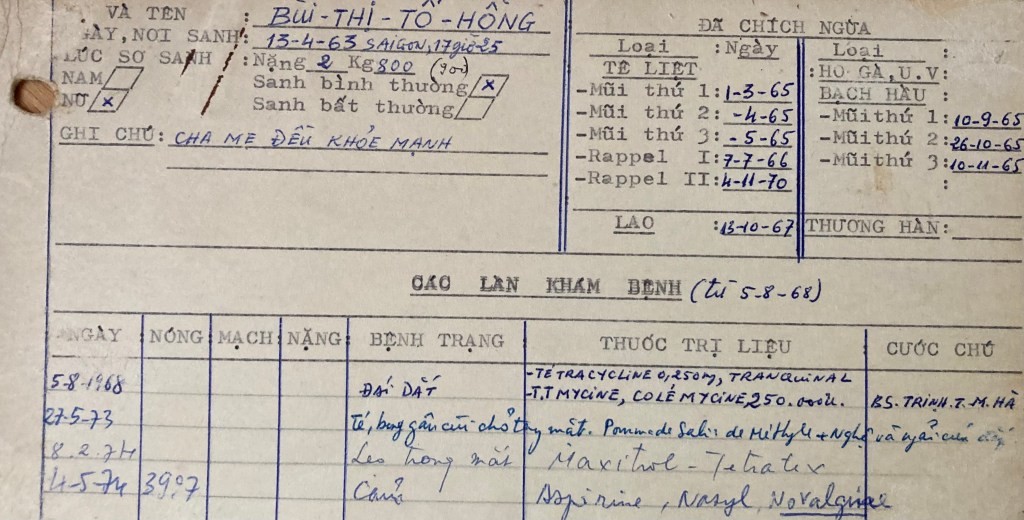 VÀ TÊN : BÙI-THỊ-TỐ-HỒNG
GÀY, NƠI SANH: 13-4-63 SAIGON, 17giờ 25
LÚC SƠ SANH : Nặng 2 Kg 800 (900)
NAM Sanh bình thường x
NỮ x Sanh bất thường
GHI CHÚ: CHA MẸ ĐỀU KHỎE MẠNH
ĐÃ CHÍCH NGỪA
Loại : Ngày
TÊ LIỆT
-Mũi thứ 1: 1-3-65
-Mũi thứ 2: -4-65
-Mũi thứ 3: -5-65
-Rappel I: 7-7-66
-Rappel II: 4-11-70
LAO : 13-10-67
Loại :
: HO GÀ, U.V:
BẠCH HẦU :
-Mũi thứ 1: 10-9-65
-Mũi thứ 2: 26-10-65
-Mũi thứ 3: 10-11-65
:
THƯƠNG HÀN:
CÁC LẦN KHÁM BỆNH (từ 5-8-68)
NGÀY NÓNG MẠCH NẶNG BỆNH TRẠNG THUỐC TRỊ LIỆU CƯỚC CHÚ
-TÉTRACYCLINE 0,250m, TRANQUINAL
5-8-1968 ĐÁI DẮT -T.T MYCINE, COLÉMYCINE 250.000u. BS. TRỊNH.T.M.HÀ
27-5-73 Té, bong gân cùi chỏ tay mặt. Pommade Salic de Méthyle + Nghệ và
8.2.74 Leo trong mắt Maxitrol - Tetratex
4-5-74 39º7 Cảm Aspirine, Nasyl, Novalgine